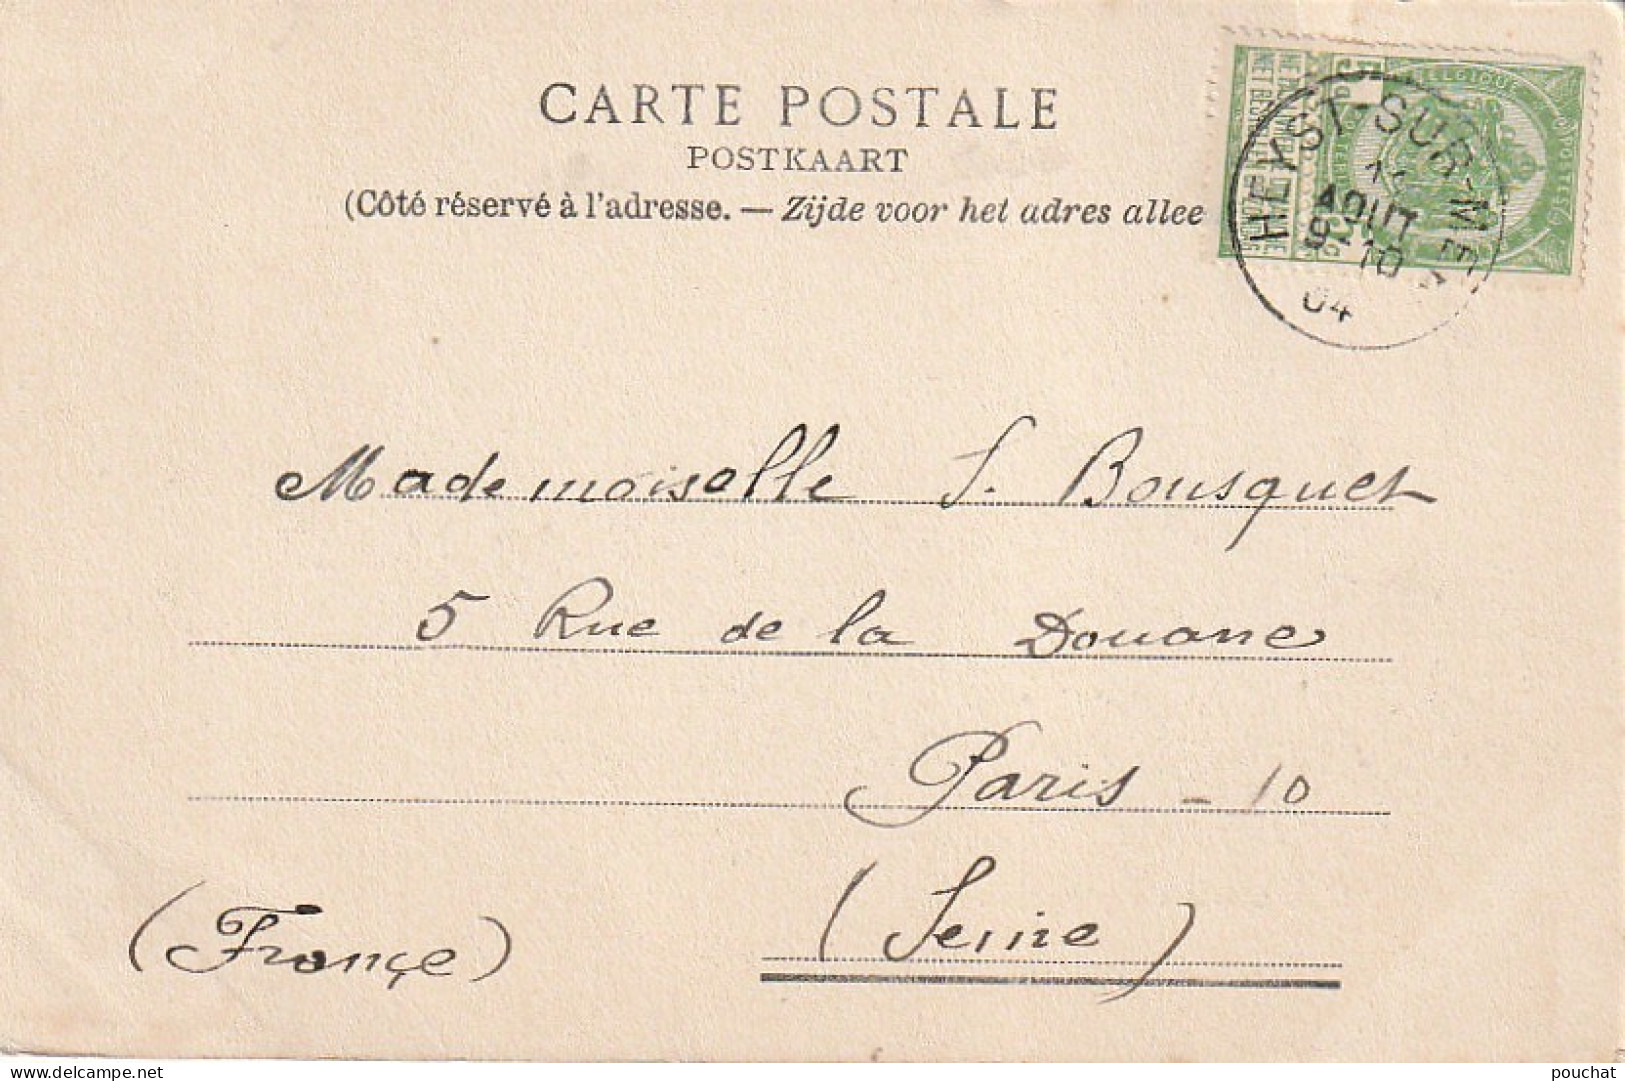 CARTE POSTALE
POSTKAART
(Côté réservé à l'adresse. — Zijde voor het adres allee
HEYST-SUR-M
AOUT
9-10
04
BELGIQUE
POSTES
Mademoiselle S. Bousquet
5 Rue de la Douane
Paris - 10
(Seine)
(Françe)
pouchat